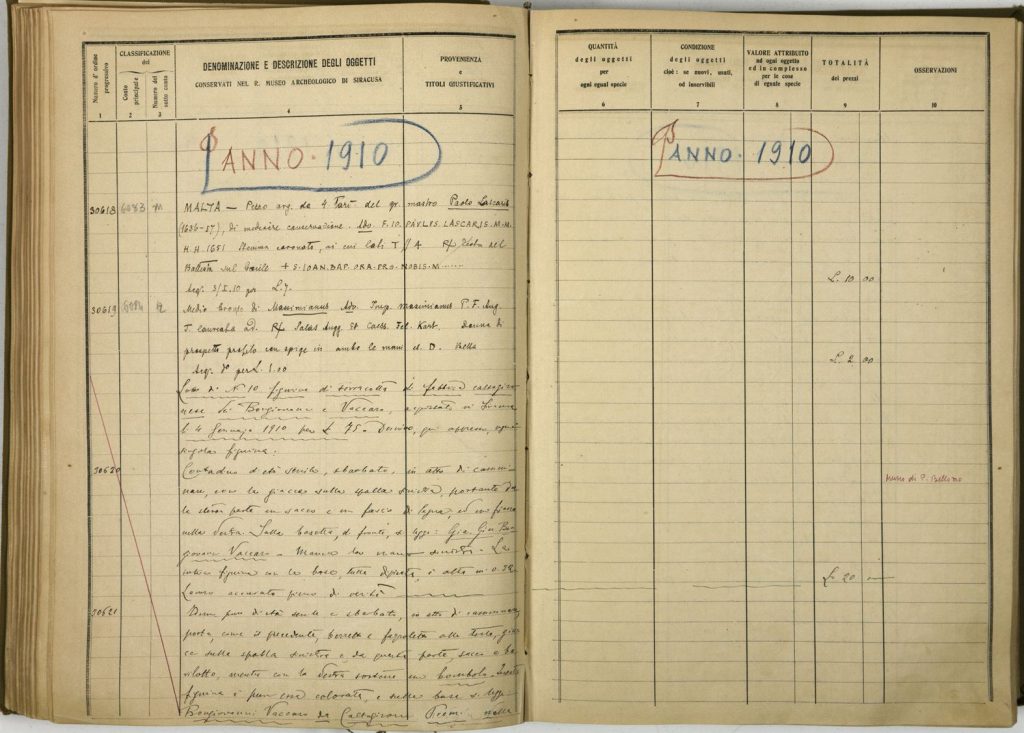 Numero d'ordine progressivo
CLASSIFICAZIONE
dei
Conto principale
Numero del sotto conto
DENOMINAZIONE E DESCRIZIONE DEGLI OGGETTI
CONSERVATI NEL R. MUSEO ARCHEOLOGICO DI SIRACUSA
PROVENIENZA
e
TITOLI GIUSTIFICATIVI
1 2 3 4 5
ANNO · 1910
30618 6083 M MALTA — Pezzo arg. da 4 Tarì del gr. mastro Paolo Lascaris
(1636-57), di mediocre conservazione. Ado. F. IO. PAVLVS. LASCARIS. M. M.
H. H. 1651 Stemma coronato, ai cui lati T // A
Battista sul + S. IOAN. BAP. ORA. PRO. NOBIS. M
Acq. 3/I.10 per L. 7.
30619 6084 Medio bronzo di Maximianus Ado. Imp. Maximianus P. F. Aug.
T. laureata ad. Salvis Augg. et Caess. Fel. Kart. donna di
prospetto con spighe in ambo le mani
Acq. per L. 1.00
Lotto di N 10 figurine di terracotta di fabbrica caltagiro
nese di Bongiovanni e Vaccaro, acquistato in Siracusa
il 4 Gennaio 1910 per £ 75.
singola figurina.
30620 Contadino d'età senile, sbarbato, in atto di cammi
nare, con la giacca sulla spalla sinistra, portante da
la stessa parte un sacco e un fascio di legna, ed un
nella destra. Sulla basetta, di fronte, si legge: Gia. Giu. Bon
giovanni Vaccaro - Manca la mano sinistra - La
intera figura con la base, tutta dipinta, è alta m 0.32
Lavoro accurato pieno di verità
30621 pur di età senile e sbarbato, in atto di camminare,
porta, come il precedente, berretta e fazzoletto alla testa, giac
ca sulla spalla sinistra e da questa parte, sacco e ba
rilotto, mentre con la destra sostiene un bombolo. Questa
figurina è pure essa colorata, e sulla base si legge
Bongiovanni Vaccaro da Caltagirone Prem. nella
QUANTITÀ
degli oggetti
per
ogni egual specie
CONDIZIONE
degli oggetti
cioè: se nuovi, usati,
od inservibili
VALORE ATTRIBUITO
ad ogni oggetto
ed in complesso
per le cose
di eguale specie
TOTALITÀ
dei prezzi
OSSERVAZIONI
6 7 8 9 10
ANNO · 1910
L. 10 00
L. 2 00
museo di P. Bellomo
L. 20